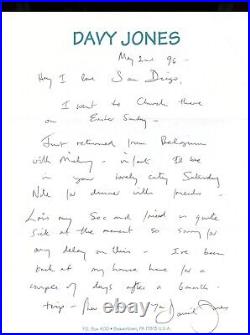 DAVY JONES
May 2nd 96
Hey I love San Diego.
I went to Church there
on Easter Sunday
Just returned from
with Mickey in fact I'll be
in your lovely city Saturday
Nite for dinner with friends
my Sec and friend is quite
sick at the moment so sorry for
any delay on this I've been
back at my house here for a
couple of days after a 6 month
trip
P.O. Box 400 Beavertown, PA 17813 U.S.A.